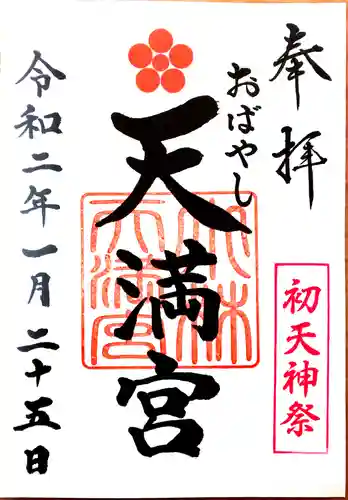 奉拝
初天神祭
おばやし
天満宮
令和二年一月二十五日